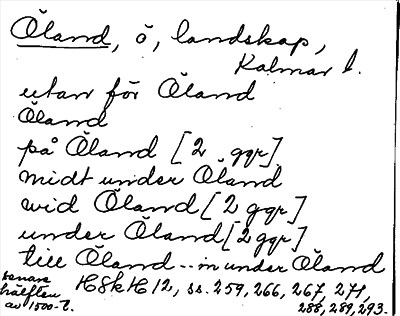 Öland, ö, landskap,
Kalmar l.
utan för Öland
Öland
på Öland [2 ggr]
midt under Öland
wid Öland [2 ggr]
under Öland [2 ggr]
till Öland .. in under Öland
senare hälften av 1500-t.
HSkH 12, ss. 259, 266, 267, 271,
288, 289, 293.